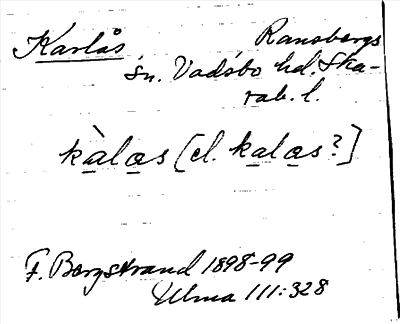 Karlås Ransbergs
sn. Vadsbo hd. Ska-
rab. l.
kàlas [el. kalas?]
F. Bergstrand 1898-99
Ulma 111:328